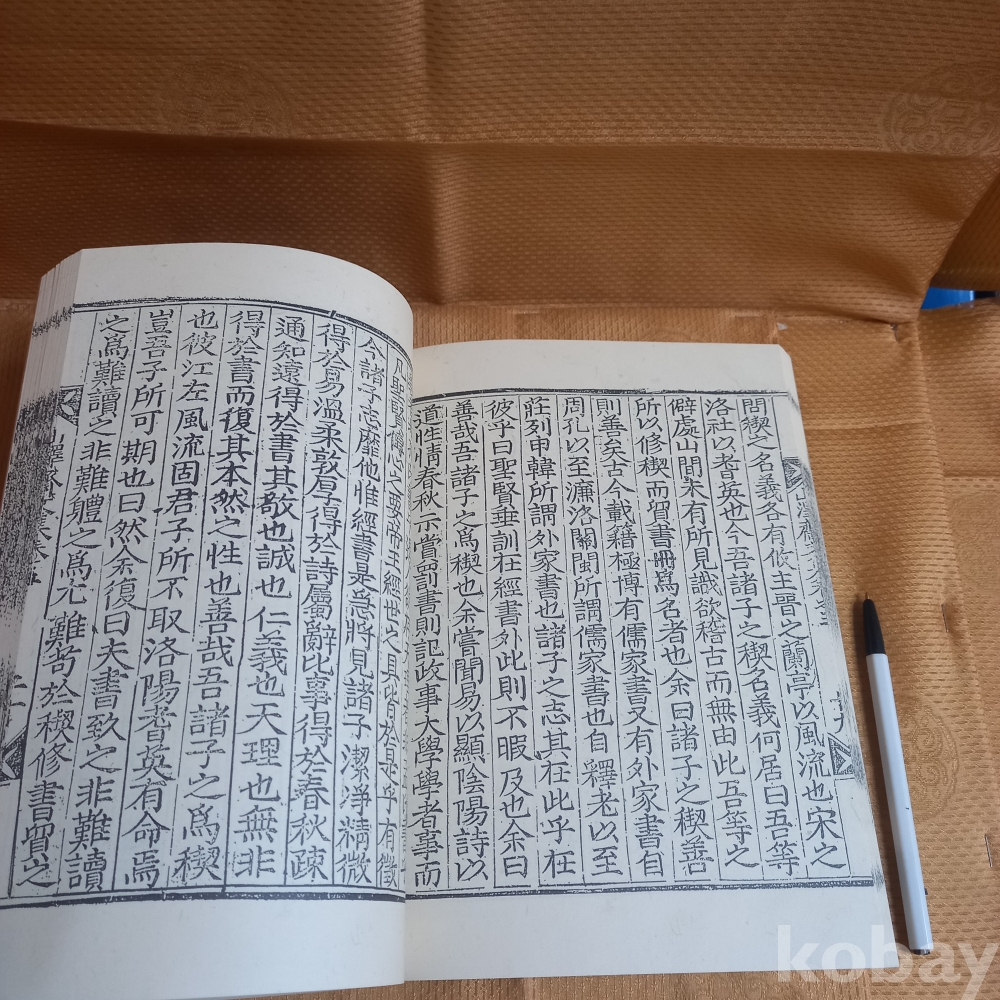 問稧之名義各有攸主晋之蘭亭以風流也宋之
洛社以耆英也今吾諸子之稧名義何居曰吾等
僻處山間未有所見識欲稽古而無由此吾等之
所以修稧而貿書冊爲名者也余曰諸子之稧善
則善矣古今載籍極博有儒家書又有外家書自
周孔以至濂洛關閩所謂儒家書也自釋老以至
莊列申韓所謂外家書也諸子之志其在此乎在
彼乎曰聖賢垂訓在經書外此則不暇及也余曰
善哉吾諸子之爲稧也余嘗聞易以顯陰陽詩以
道性情春秋示賞罰書則記政事大學學者事而
凡聖賢傳心之要帝王經世之具皆於是乎有徵
今諸子志靡他惟經書是急將見諸子潔淨精微
得於易溫柔敦厚得於詩屬辭比事得於春秋疎
通知遠得於書其敬也誠也仁義也天理也無非
得於書而復其本然之性也善哉吾諸子之爲稧
也彼江左風流固君子所不取洛陽耆英有命焉
豈吾子所可期也曰然余復曰夫書致之非難讀
之爲難讀之非難體之爲尤難苟於稧修書貿之
kobay